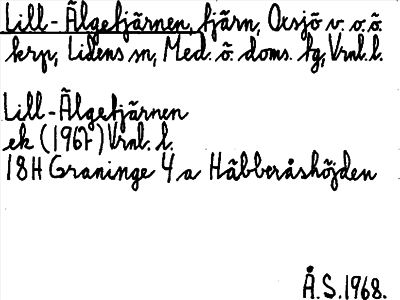 Lill-Älgetjärnen, tjärn, Oxsjö v. o. ö.
krp, Lidens sn, Med. ö. doms. tg, Vrnl. l.
Lill-Älgetjärnen
ek (1967) Vrnl. l.
18H Graninge 4 a Häbberåshöjden
Å.S. 1968.